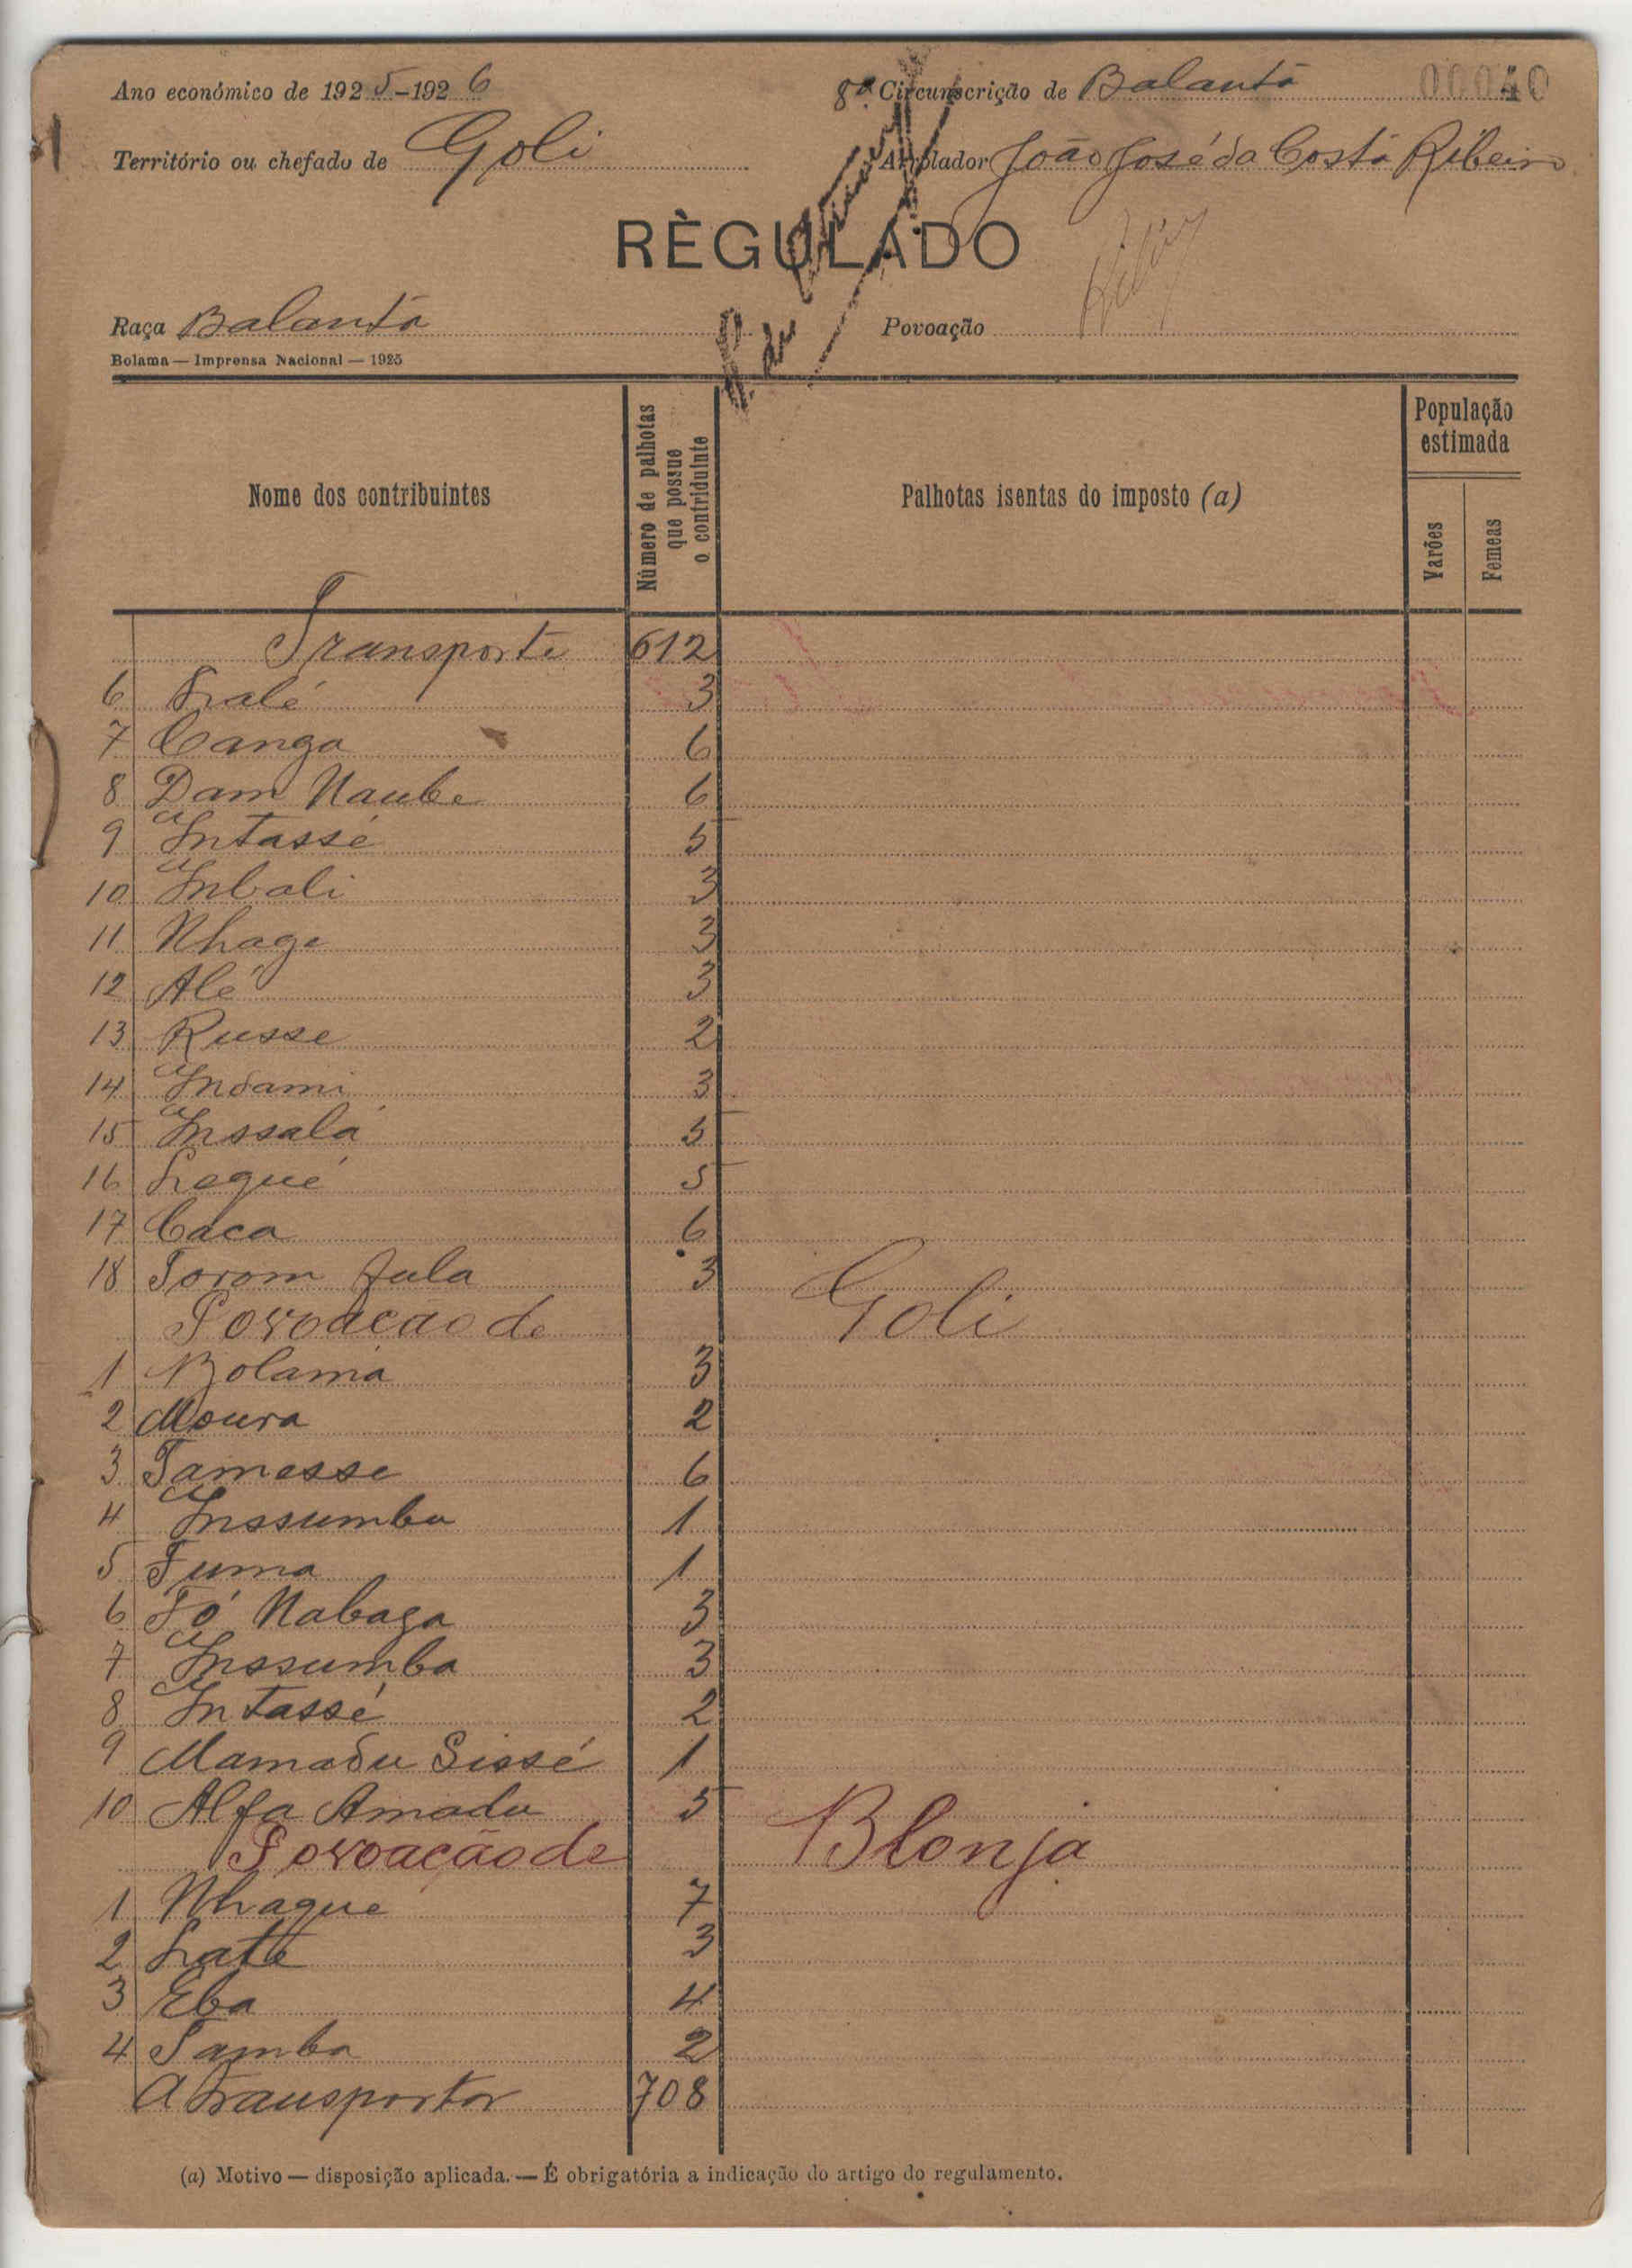 Ano económico de 1925-1926
8ª Circunscrição de Balanta
00040
Território ou chefado de Goli
Arrolador João José da Costa Ribeiro
RÈGULADO
Raça Balanta
Povoação
Bolama — Imprensa Nacional — 1925
Nome dos contribuintes
Número de palhotas que possue o contriduinte
Palhotas isentas do imposto (a)
População estimada
Varões
Femeas
Transporte 612
6 Lalé 3
7 Canga 6
8 Dam Naube 6
9 Intassé 5
10 Inbali 3
11 Nhage 3
12 Alé 3
13 Russe 2
14 Indami 3
15 Inssalá 5
16 Legué 5
17 Caca 6
18 Torom fula 3
Povoação de Goli
1 Bolama 3
2 Moura 2
3 Tamesse 6
4 Inssumba 1
5 Tuma 1
6 Fó Nabaga 3
7 Inssumba 3
8 Intassé 2
9 Mamadu Sissé 1
10 Alfa Amadu 5
Povoação de Blonja
1 Nhague 7
2 Late 3
3 Eba 4
4 Samba 2
A transportar 708
(a) Motivo — disposição aplicada. — É obrigatória a indicação do artigo do regulamento.